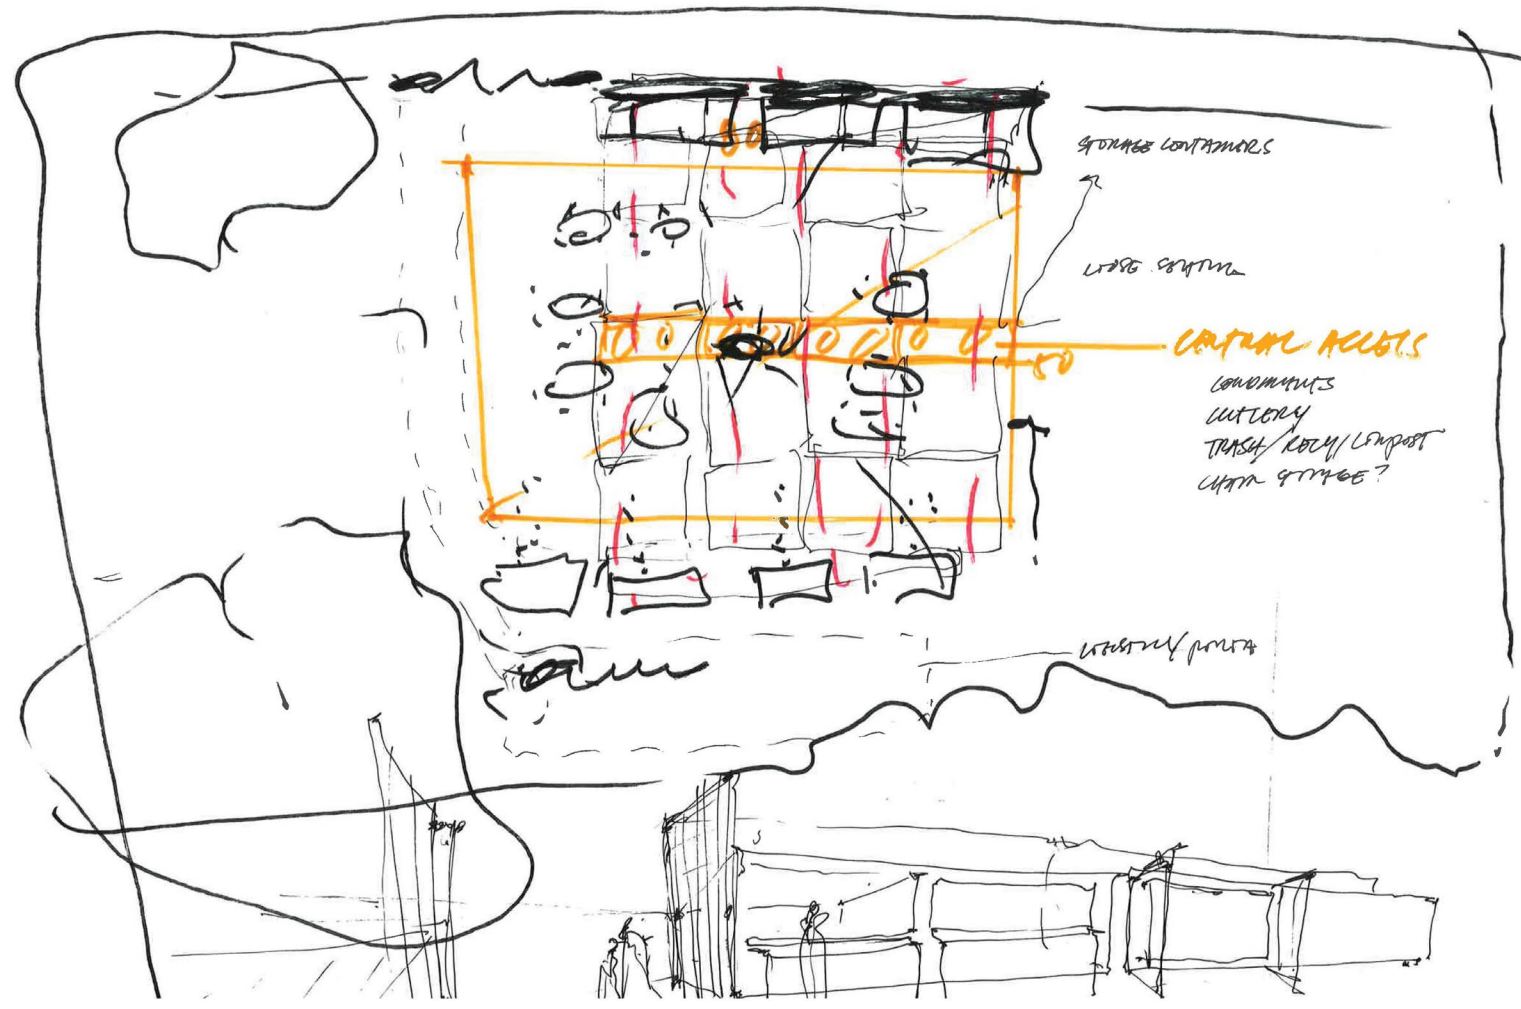 STORAGE CONTAINERS
LOOSE SEATING
CENTRAL ACCESS
50
CONDIMENTS
CUTLERY
TRASH/RECY/COMPOST
CHAIR STORAGE?